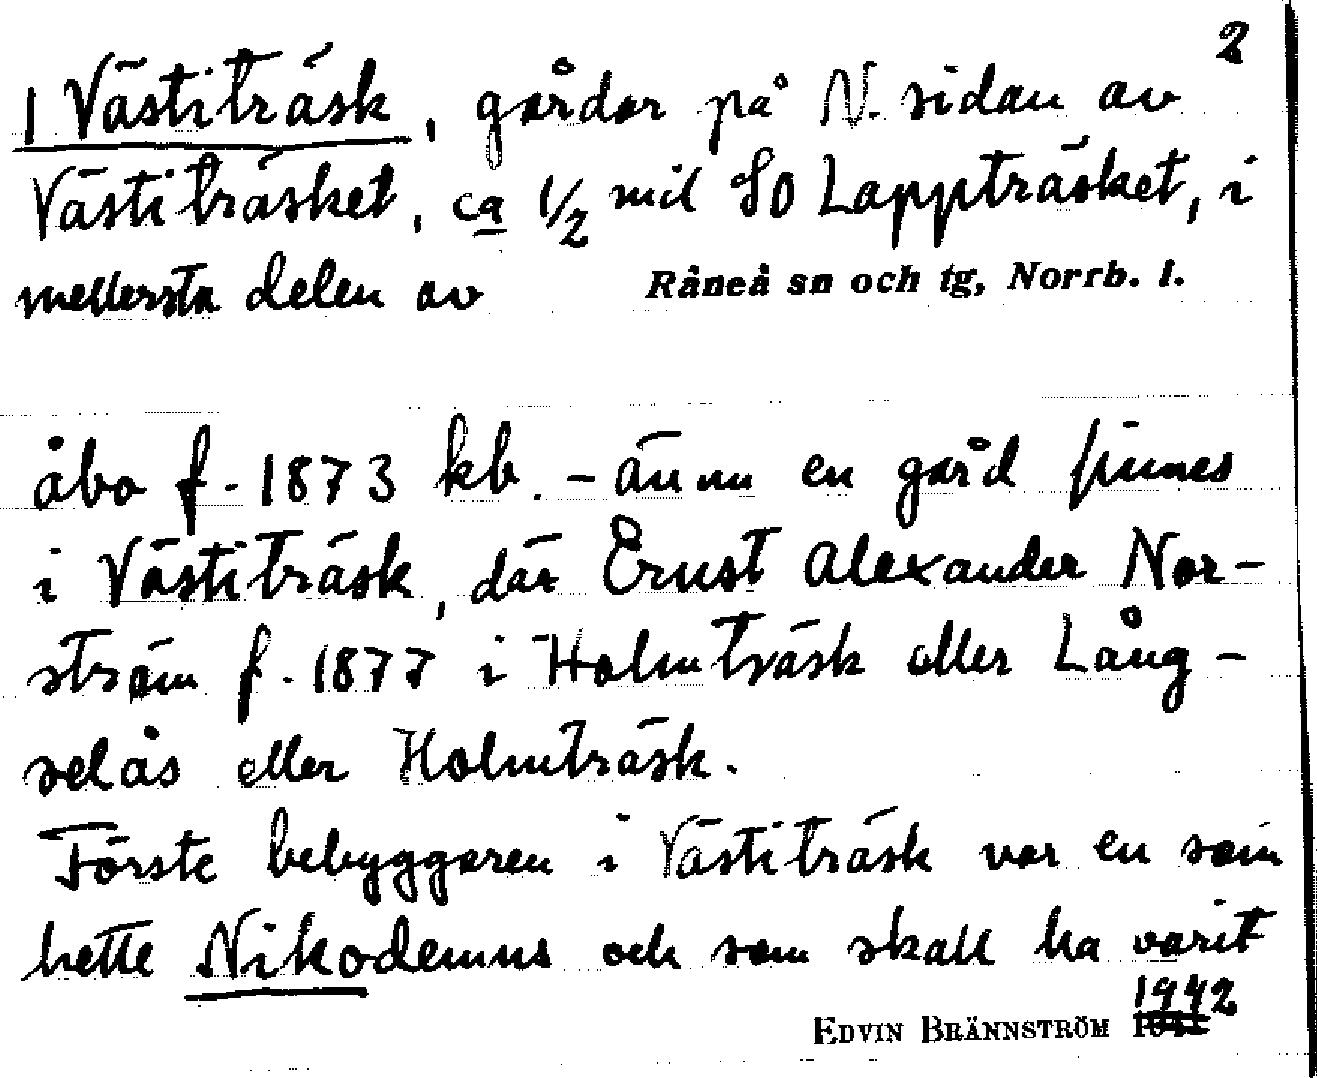 2
1 Västiträsk, gårdar på N. sidan av
Västiträsket, ca 1/2 mil SO Lappträsket, i
mellersta delen av Råneå sn och tg, Norrb. l.
åbo f. 1873 kb. - ännu en gård finnes
i Västiträsk, där Ernst Alexander Nor-
ström f. 1877 i Holmträsk eller Lång-
selås eller Holmträsk.
Förste bebyggaren i Västiträsk var en som
hette Nikodemus och som skall ha varit
1942
EDVIN BRÄNNSTRÖM